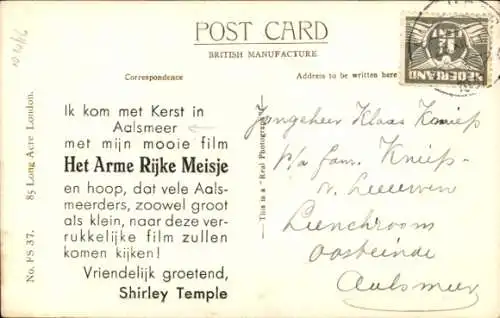 POST CARD
BRITISH MANUFACTURE.
Correspondence
Address to be written here
NEDERLAND
85 Long Acre London.
No. FS 37.
Ik kom met Kerst in
Aalsmeer
met mijn mooie film
Het Arme Rijke Meisje
en hoop, dat vele Aals-
meerders, zoowel groot
als klein, naar deze ver-
rukkelijke film zullen
komen kijken!
Vriendelijk groetend,
Shirley Temple
This is a "Real Photograph"
Jongeheer Klaas
p/a fam.
v. Leeuwen
Lunchroom
Oosteinde
Aalsmeer